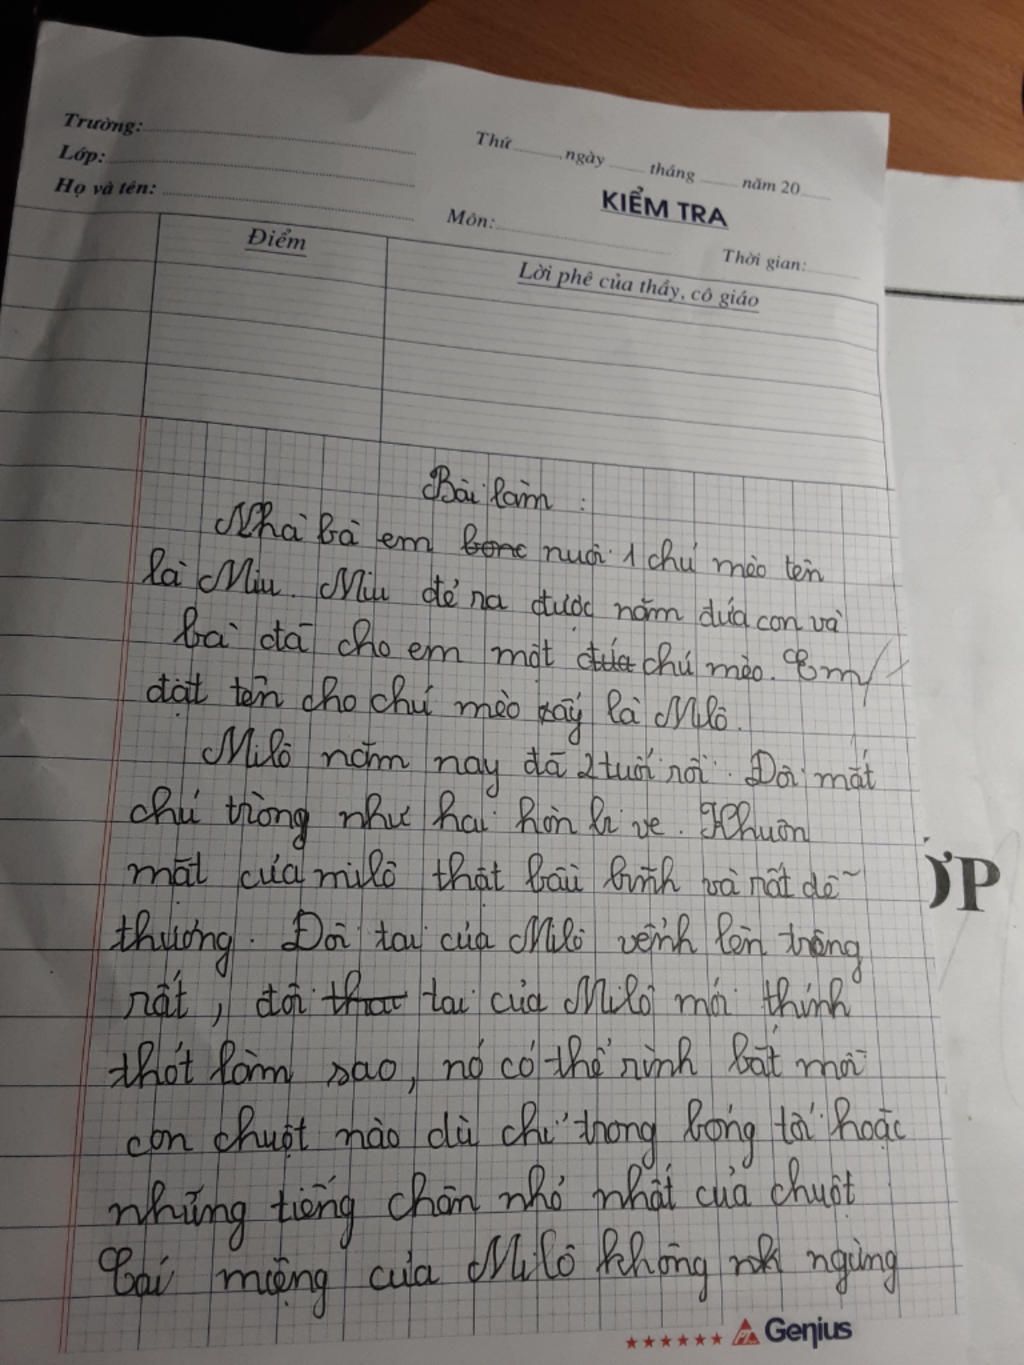 Trường:
Lớp:
Họ và tên:
Thứ ngày tháng năm 20
KIỂM TRA
Môn:
Thời gian:
Điểm
Lời phê của thầy, cô giáo
Bài làm :
Nhà bà em nuôi 1 chú mèo tên
là Miu. Miu đẻ ra được năm đứa con và
bà đã cho em một chú mèo. Em
đặt tên cho chú mèo ấy là Milô.
Milô năm nay đã 2 tuổi rồi. Đôi mắt
chú tròng như hai hòn bi ve. Khuôn
mặt của milô thật bầu bĩnh và rất dễ
thương. Đôi tai của Milô vểnh lên trông
rất, đôi tai của Milô mới thính
thót làm sao, nó có thể rình bắt mồi
con chuột nào dù chỉ trong bóng tối hoặc
những tiếng chân nhỏ nhất của chuột
Cái miệng của Milô không ngừng
ỚP
Genius